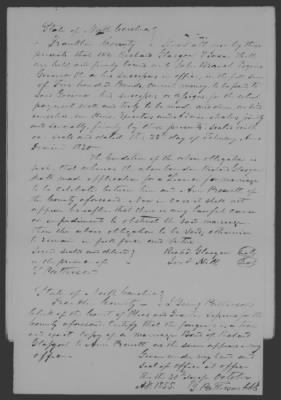 State of North Carolina
Franklin County Know all men by these
presents that we Richard Glasgow &
are held and firmly bound unto John Branch Esquire
Governor &c &c his successors in office, in the full sum
of Five hundred Pounds, current money to be paid to
said Governor his successors or assigns, to the which
payment well and truly to be made, we bind
ourselves, our Heirs, Executors and Administrators jointly
and severally, firmly by these presents, sealed with
our seals and dated this day of February Anno
Domini 1820
The Condition of the above obligation is
such, that whereas the above bounden Richard Glasgow
hath made application for a License for marriage
to be celebrated between him and Ann
of the county aforesaid. Now in case it shall not
appear hereafter that there is any lawful cause
or impediment to obstruct the said marriage
then the above obligation to be void, otherwise
to remain in full force and virtue
Richd Glasgow Seal
in the presence of Seal
State of North Carolina
Franklin County
Clerk of the Court of Pleas and Quarter Sessions for the
County aforesaid Certify that the foregoing is a true
and exact copy of a marriage Bond of Richard
Glasgow to Ann as the same appears in my
office. Given under my hand and
seal of office at office
the day of October
AD. 1855.